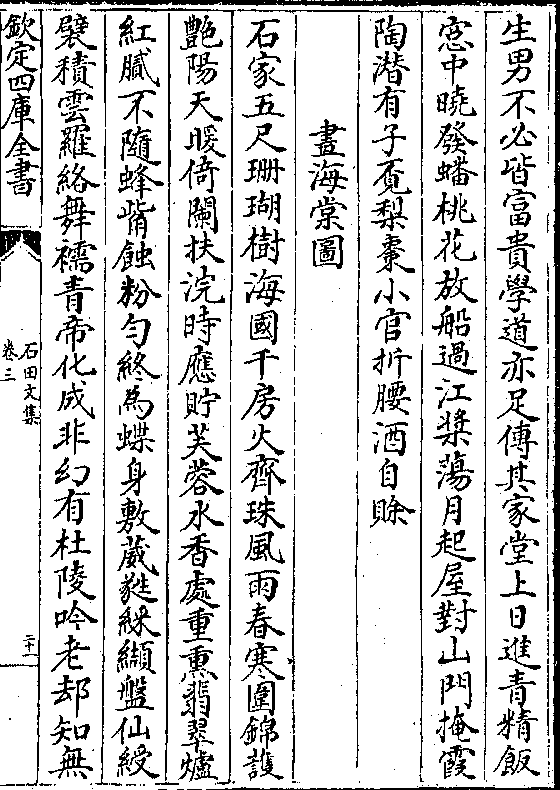 生男不必皆富貴學道亦足傳其家堂上日進青精飯
窓中曉發蟠桃花放船過江槳蕩月起屋對山門掩霞
陶潜有子覔梨棗小官折腰酒自賖
畫海棠圖
石家五尺珊瑚樹海國千房火齊珠風雨春寒圍錦護
艷陽天暖倚闌扶浣時應貯芙蓉水香處重熏翡翠爐
紅膩不隨蜂觜蝕粉勻終為蝶身敷葳蕤綵纈盤仙綬
襞積雲羅絡舞襦青帝化成非幻有杜陵吟老却知無
欽定四庫全書
石田文集
卷三
二十一